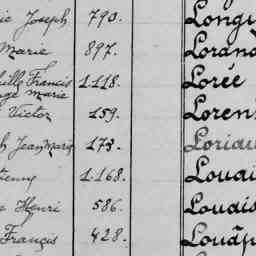 Joseph 790. Longu
Marie 897. Lorand
Francis 1.118. Lorée
Marie
Victor 159. Loren
Jean Marie 173. Loriau
1.168. Louai
Henri 586. Louais
Francis 428. Louâp